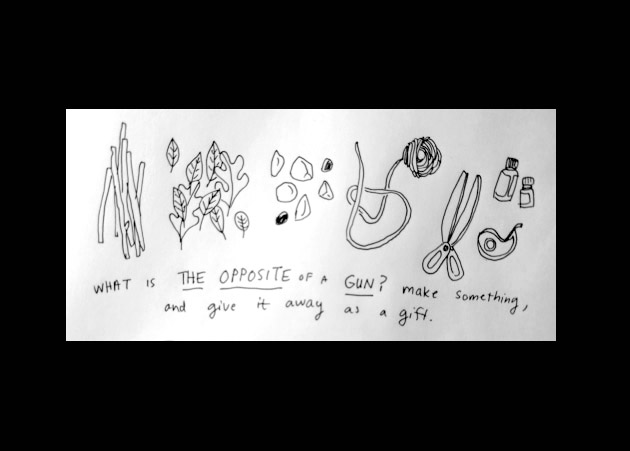 WHAT IS THE OPPOSITE OF A GUN? make something,
and give it away as a gift.